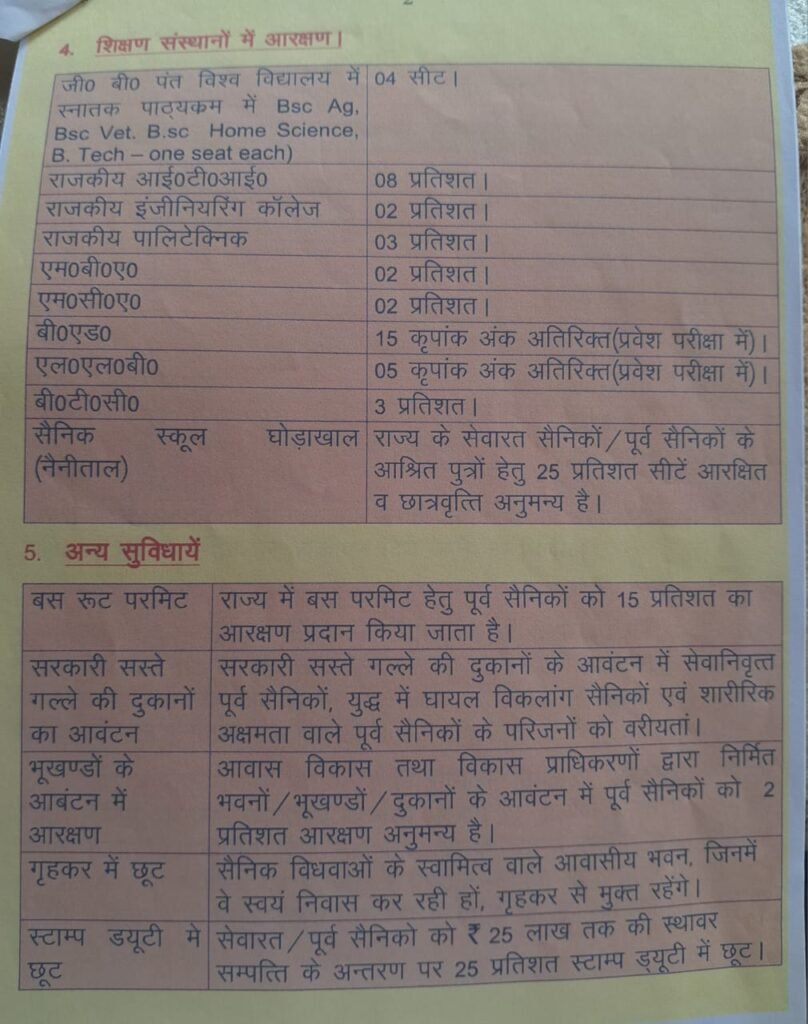 2
4. शिक्षण संस्थानों में आरक्षण।
जी0 बी0 पंत विश्व विद्यालय में 04 सीट।
स्नातक पाठ्यकम में Bsc Ag,
Bsc Vet. B.sc Home Science,
B. Tech – one seat each)
राजकीय आई0टी0आई0 08 प्रतिशत।
राजकीय इंजीनियरिंग कॉलेज 02 प्रतिशत।
राजकीय पालिटेक्निक 03 प्रतिशत।
एम0बी0ए0 02 प्रतिशत।
एम0सी0ए0 02 प्रतिशत।
बी0एड0 15 कृपांक अंक अतिरिक्त(प्रवेश परीक्षा में)।
एल0एल0बी0 05 कृपांक अंक अतिरिक्त(प्रवेश परीक्षा में)।
बी0टी0सी0 3 प्रतिशत।
सैनिक स्कूल घोड़ाखाल राज्य के सेवारत सैनिकों/पूर्व सैनिकों के
(नैनीताल) आश्रित पुत्रों हेतु 25 प्रतिशत सीटें आरक्षित
व छात्रवृत्ति अनुमन्य है।
5. अन्य सुविधायें
बस रूट परमिट राज्य में बस परमिट हेतु पूर्व सैनिकों को 15 प्रतिशत का
आरक्षण प्रदान किया जाता है।
सरकारी सस्ते सरकारी सस्ते गल्ले की दुकानों के आवंटन में सेवानिवृत्त
गल्ले की दुकानों पूर्व सैनिकों, युद्ध में घायल विकलांग सैनिकों एवं शारीरिक
का आवंटन अक्षमता वाले पूर्व सैनिकों के परिजनों को वरीयतां।
भूखण्डों के आवास विकास तथा विकास प्राधिकरणों द्वारा निर्मित
आबंटन में भवनों/भूखण्डों/दुकानों के आवंटन में पूर्व सैनिकों को 2
आरक्षण प्रतिशत आरक्षण अनुमन्य है।
गृहकर में छूट सैनिक विधवाओं के स्वामित्व वाले आवासीय भवन, जिनमें
वे स्वयं निवास कर रही हों, गृहकर से मुक्त रहेंगे।
स्टाम्प डयूटी मे सेवारत/पूर्व सैनिको को ₹ 25 लाख तक की स्थावर
छूट सम्पत्ति के अन्तरण पर 25 प्रतिशत स्टाम्प ड्यूटी में छूट।